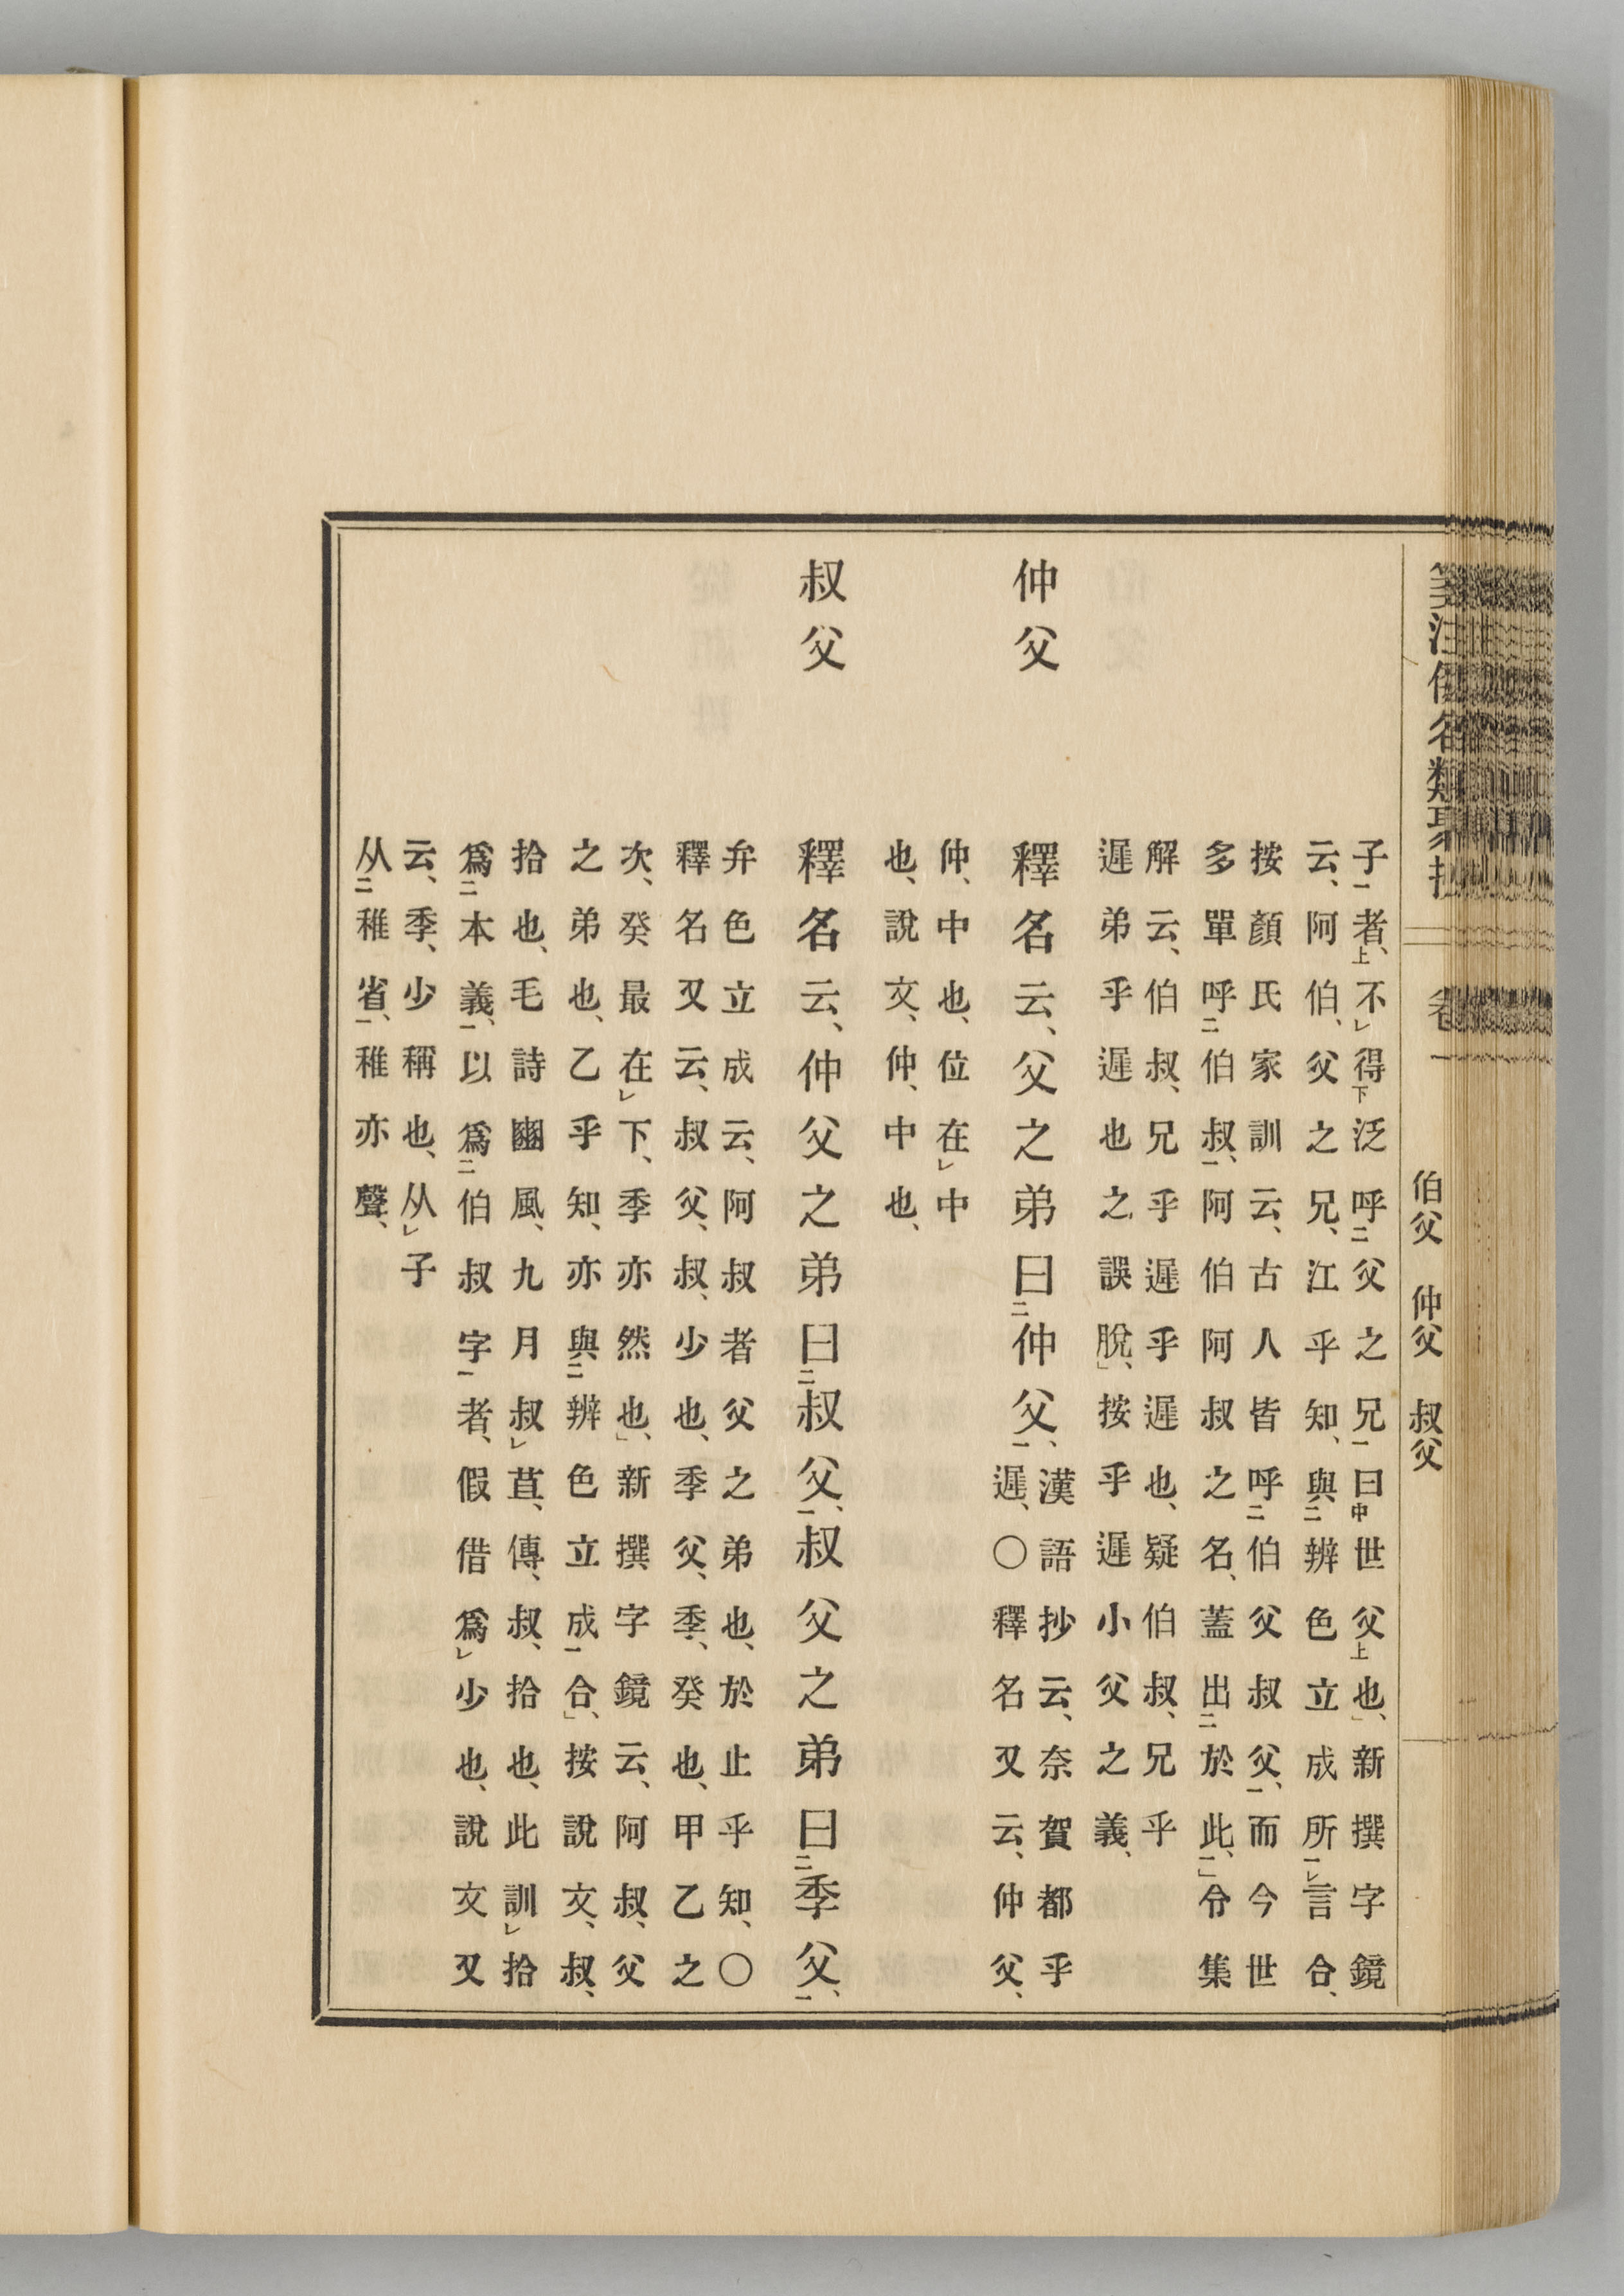 箋注倭名類聚抄 卷一 伯父 仲父 叔父
子一者、上不レ得下泛呼二父之兄一曰中世父上也、」新撰字鏡
云、阿伯、父之兄、江乎知、與二辨色立成所一レ言合、
按顏氏家訓云、古人皆呼二伯父叔父一、而今世
多單呼二伯叔一、阿伯阿叔之名、蓋出二於此、二」令集
解云、伯叔、兄乎遲乎遲也、疑伯叔、兄乎
遲弟乎遲也之誤脫、」按乎遲小父之義、
仲父 釋名云、父之弟曰二仲父一、漢語抄云、奈賀都乎
遲、〇釋名又云、仲父、
仲、中也、位在レ中
也、說文、仲、中也、
叔父 釋名云、仲父之弟曰二叔父一、叔父之弟曰二季父一、
弁色立成云、阿叔者父之弟也、於止乎知、〇
釋名又云、叔父、叔、少也、季父、季、癸也、甲乙之
次、癸最在レ下、季亦然也、」新撰字鏡云、阿叔、父
之弟也、乙乎知、亦與二辨色立成一合、」按說文、叔、
拾也、毛詩豳風、九月叔レ苴、傳、叔、拾也、此訓レ拾
爲二本義一、以爲二伯叔字一者、假借爲レ少也、說文又
云、季、少稱也、从レ子
从二稚省一、稚亦聲、